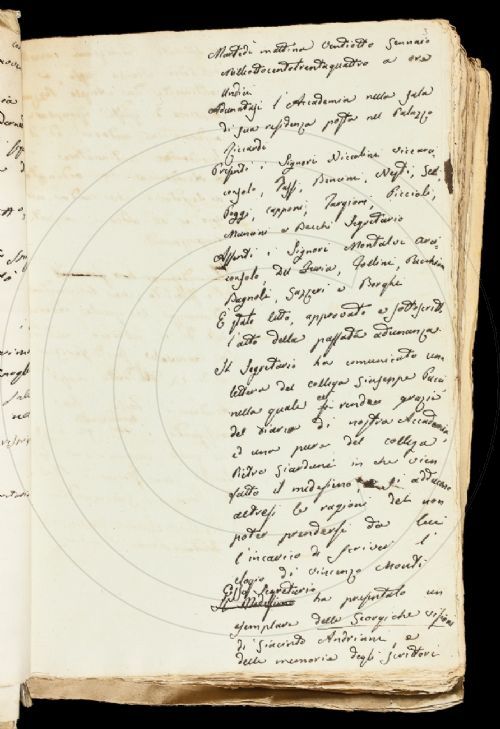 Martedì mattina Ventotto Gennaio
milleottocentotrentaquattro a ora
Undici
Adunatasi l'Accademia nella sala
di sua residenza posta nel Palazzo
Riccardi
Presenti i Signori Niccolini vicearci
consolo, Bencini, Nesti,
Poggi, Capponi, Targioni, Riccioli,
Mancini e Becchi Segretario
Assenti i Signori Montalvi Arci
consolo, Del Furia, Follini,
Bagnoli, Gazzeri e Borghi
È stato letto, approvato e sottoscritto
l'atto della passata adunanza.
Il Segretario ha comunicato una
lettera del collega Giuseppe Pucci
nella quale si rendono grazie
del diario di nostra Accademia,
ed una pure del collega
Pietro Giordani in che vien
fatto il medesimo, e si adducono
altresì le ragioni del non
poter prendersi da lui
l'incarico di scriver l'
elogio di Vincenzo Monti
Esso Segretario
Il Medesimo ha presentato un
esemplare delle Georgiche
di Giacinto Andriani, e
delle memorie degli scrittori